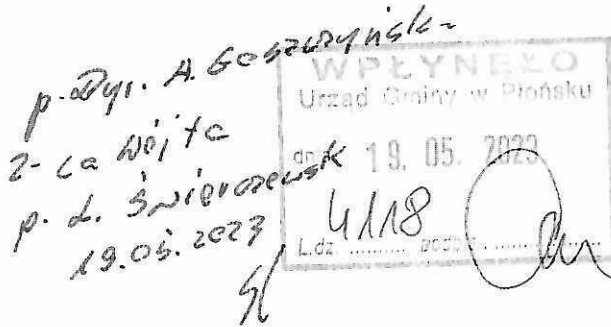 p. Dyr. A. Goszczyńska
Z-ca Wójta
p. L. Świerczewski
19.05.2023
WPŁYNĘŁO
Urząd Gminy w Płońsku
dn. 19. 05. 2023
L.dz. 4118 podpis